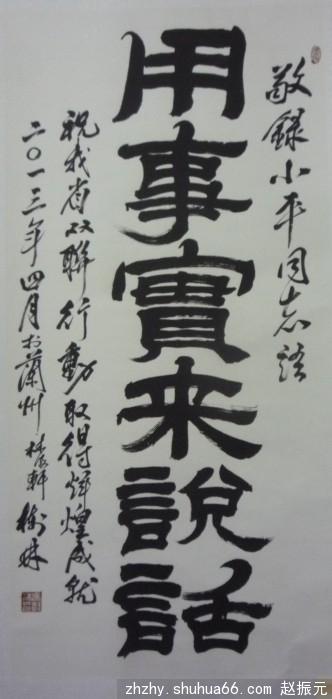 敬録小平同志语
用事實来說話
祝我省双聯行動取得辉煌成就
二〇一三年四月於蘭州
zhzhy.shuhua66.com 赵振元